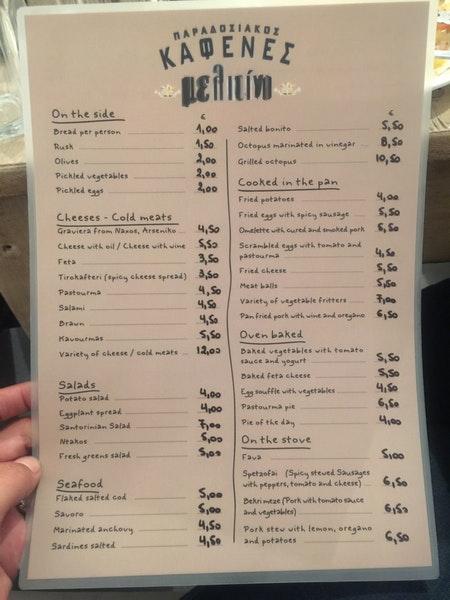 ΠΑΡΑΔΟΣΙΑΚΟΣ
ΚΑΦΕΝΕΣ
μελιτίνη
On the side
€
Bread per person 1,00
Rusk 1,50
Olives 2,00
Pickled vegetables 2,00
Pickled eggs 2,00
Cheeses - Cold meats
Graviera from Naxos, Arseniko 4,50
Cheese with oil / Cheese with wine 5,50
Feta 3,50
Tirokafteri (spicy cheese spread) 3,50
Pastourma 4,50
Salami 4,50
Brawn 4,50
Kavourmas 5,50
Variety of cheese / cold meats 12,00
Salads
Potato salad 4,00
Eggplant spread 4,00
Santorinian Salad 7,00
Ntakos 5,00
Fresh greens salad 5,00
Seafood
Flaked salted cod 5,00
Savoro 5,00
Marinated anchovy 4,50
Sardines salted 4,50
€
Salted bonito 5,50
Octopus marinated in vinegar 8,50
Grilled octopus 10,50
Cooked in the pan
Fried potatoes 4,00
Fried eggs with spicy sausage 5,50
Omelette with cured and smoked pork 5,50
Scrambled eggs with tomato and
pastourma 4,50
Fried cheese 5,50
Meat balls 5,50
Variety of vegetable fritters 7,00
Pan fried pork with wine and oregano 6,50
Oven baked
Baked vegetables with tomato
sauce and yogurt 5,50
Baked feta cheese 5,50
Egg souffle with vegetables 4,50
Pastourma pie 6,50
Pie of the day 4,00
On the stove
Fava 5,00
Spetzofai (Spicy stewed Sausages
with peppers, tomato and cheese) 6,50
Bekri meze (Pork with tomato sauce
and vegetables) 6,50
Pork stew with lemon, oregano
and potatoes 6,50